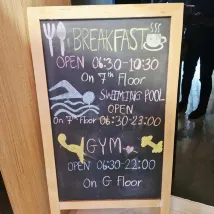 BREAKFAST
OPEN 06:30-10:30
On 7th Floor
SWIMING POOL
OPEN
On 7th Floor 06:30-23:00
GYM
OPEN 06:30-22:00
On G Floor